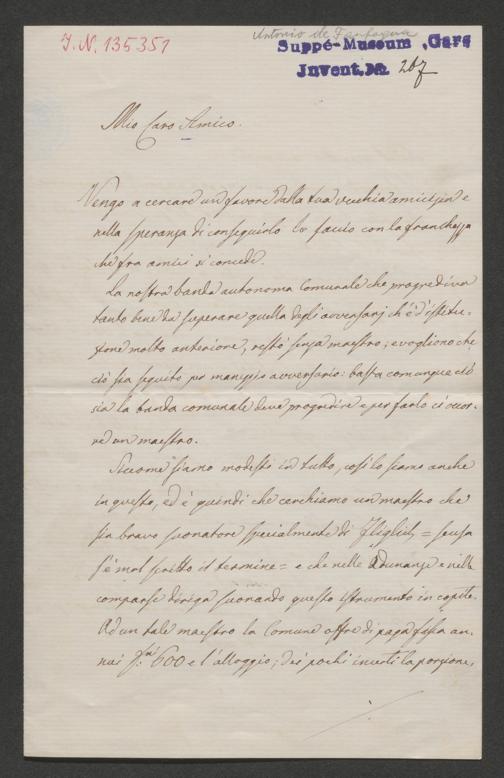 J.N. 135351
Antonio de
Suppé-Museum, Gars
Invent. No. 267
Mio Caro Amico.
Vengo a cercare un favore dalla tua vecchia amicizia e
nella speranza di conseguirlo lo faccio con la franchezza
che fra amici si concede.
La nostra banda autonoma Comunale che progrediva
tanto bene da superare quella degli avversarj ch'è d'istitu-
zione molto anteriore, restò senza maestro; e vogliono che
ciò sia seguito per maneggio avversario: basta comunque ciò
sia la banda comunale deve progredire e per farlo ci occor-
re un maestro.
Siccome siamo modesti in tutto, così lo siamo anche
in questo, ed è quindi che cerchiamo un maestro che
sia bravo suonatore specialmente di Fliglich = scusa
s'è mal scritto il termine = e che nelle adunanze e nelle
comparse diriga suonando questo istrumento in capite.
Ad un tale maestro la Comune offre di paga fissa an-
nui f.ni 600 e l'alloggio; dei pochi incerti la porzione,